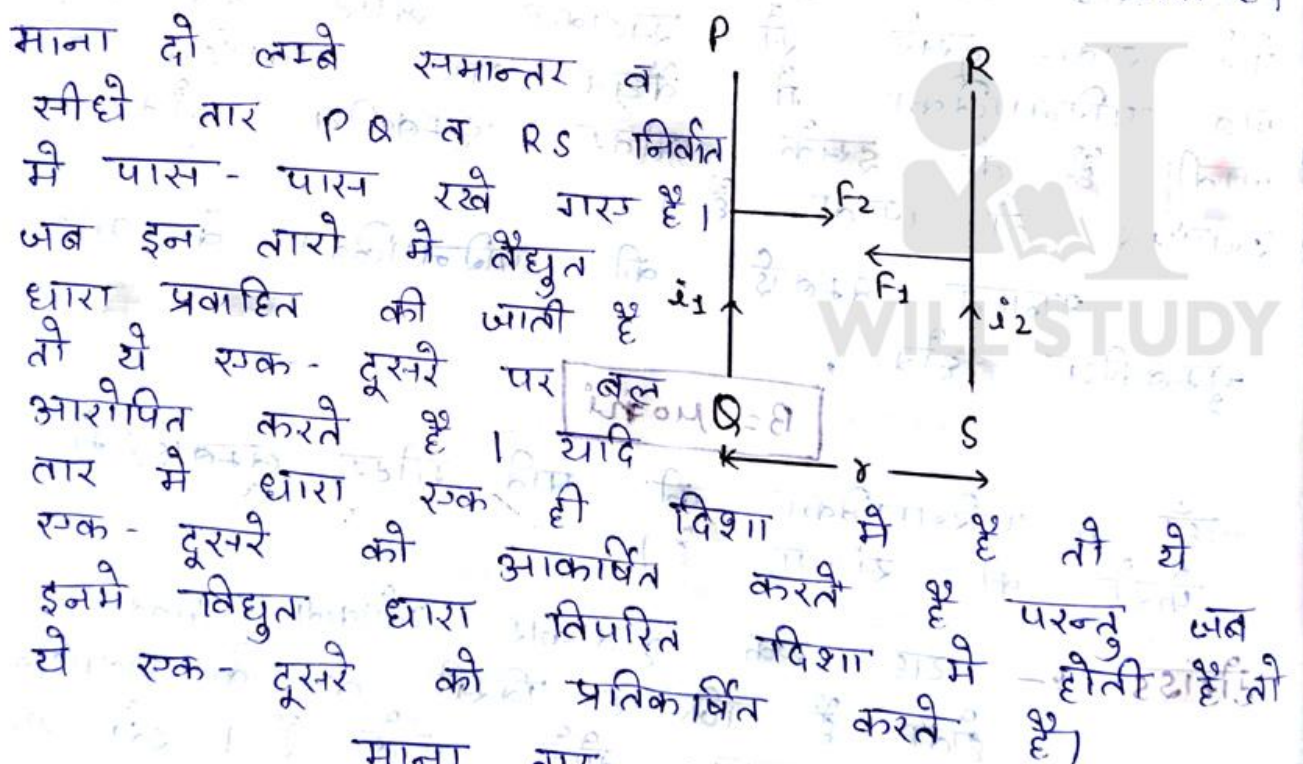 माना दो लम्बे समान्तर व
सीधे तार PQ व RS निर्वात
मे पास - पास रखे गए है।
जब इन तारो मे वैद्युत
धारा प्रवाहित की जाती है
तो ये एक - दूसरे पर बल
आरोपित करते है । यदि
तार मे धारा एक ही दिशा मे है तो ये
एक - दूसरे को आकर्षित करते है परन्तु जब
इनमे विद्युत धारा विपरित दिशा मे होती है तो
ये एक - दूसरे को प्रतिकर्षित करते है।
माना
P
R
F2
F1
i1
i2
Q
S
r
WILL STUDY